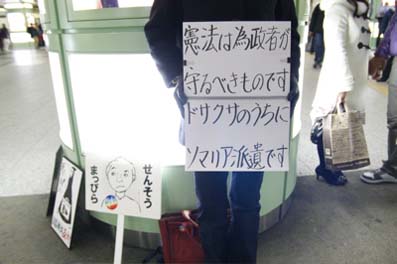 憲法は為政者が
守るべきものです
ドサクサのうちに
ソマリア派遣です
せんそう
まっぴら